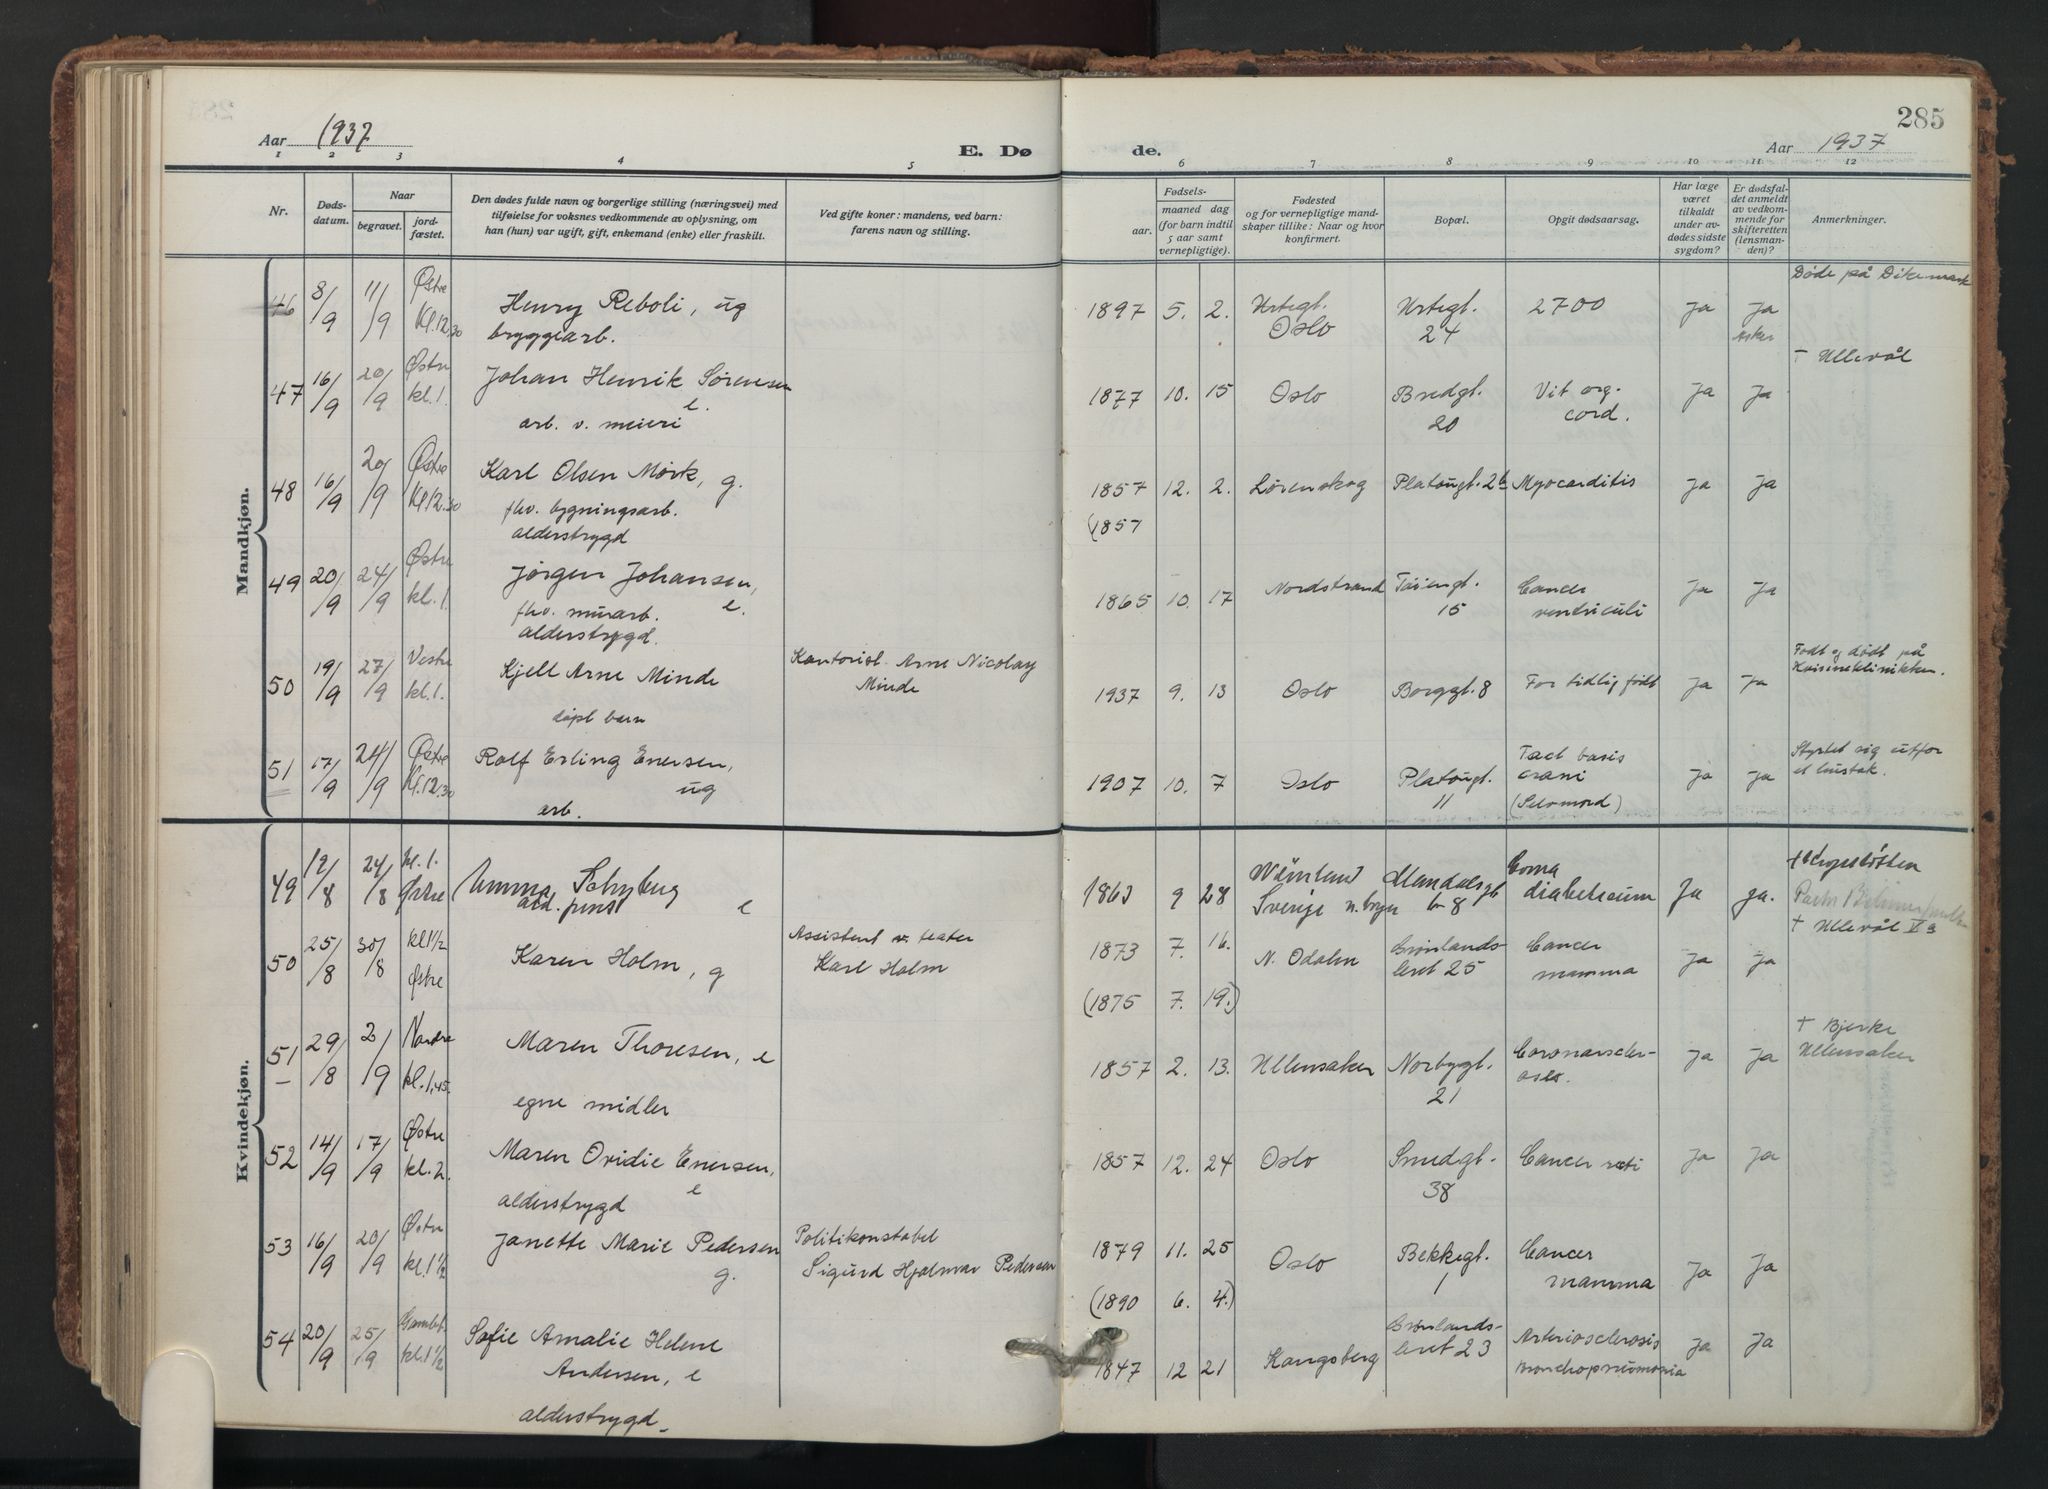 285
Aar 1937
E. Dø
de.
Aar 1937
1 2 3 4 5 6 7 8 9 10 11 12
Nr.
Døds-
datum.
Naar
begravet.
jord-
fæstet.
Den dødes fulde navn og borgerlige stilling (næringsvei) med
tilføielse for voksnes vedkommende av oplysning, om
han (hun) var ugift, gift, enkemand (enke) eller fraskilt.
Ved gifte koner: mandens, ved barn:
farens navn og stilling.
Fødsels-
aar.
maaned dag
(for barn indtil
5 aar samt
vernepligtige).
Fødested
og for vernepligtige mand-
skaper tillike: Naar og hvor
konfirmert.
Bopæl.
Opgit dødsaarsag.
Har læge
været
tilkaldt
under av-
dødes sidste
sygdom?
Er dødsfal-
det anmeldt
av vedkom-
mende for
skifteretten
(lensman-
den)?
Anmerkninger.
Mandkjøn.
46 8/9 11/9 Østre Kl. 12.30
Henry Reboli, ug
bryggearb.
1897 5. 2. Urtegt. Oslo
Urtegt. 24
2700
Ja
Ja
Asker
Døde på Dikemark
47 16/9 20/9 Østre kl. 1.
Johan Henrik Sørensen
e.
arb. v. meieri
1877 10. 15 Oslo
Bredgt. 20
Vit org. cord.
Ja
Ja
† Ullevål
48 16/9 20/9 Østre Kl 12.30
Karl Olsen Mørk, g.
fhv. bygningsarb.
alderstrygd
1857 12. 2. Lørenskog
(1857
Platougt. 2b
Myocarditis
Ja
Ja
49 20/9 24/9 Østre kl. 1.
Jørgen Johansen,
fhv. murarb. e.
alderstrygd.
1865 10. 17 Nordstrand
Tøiengt. 15
Cancer ventriculi
Ja
Ja
50 19/9 27/9 Vestre kl. 1.
Kjell Arne Minde
døpt barn
Kontorist Arne Nicolay
Minde
1937 9. 13 Oslo
Borggt. 8
For tidlig født
Ja
Ja
Født og dødt på
Kvinneklinikken.
51 17/9 24/9 Østre Kl. 12.30
Rolf Erling Enersen,
ug
arb.
1907 10. 7 Oslo
Platougt. 11
basis
crani
(Selvmord)
Ja
Ja
Styrtet sig utfor
et hustak.
Kvindekjøn.
49 19/8 24/8 kl. 1. Østre
Emma Schyberg
e
1863 9 28
Sverige
8
Coma
diabeticum
Ja
ja.
50 25/8 30/8 kl 1 1/2 Østre
Karen Holm, g
Assistent v. teater
Karl Holm
1873 7. 16. N. Odalen
(1875 7. 19.)
Grønlands-
leret 25
Cancer
mamma
Ja
Ja
† Ullevål
51 29/8 2/9 Nordre kl. 1,45.
Maren Thoresen, e
egne midler
1857 2. 13. Ullensaker
Norbygt. 21
Coronarscler-
ose.
Ja
Ja
† Bjerke
Ullensaker
52 14/9 17/9 Østre kl. 2.
Maren Ovidie Enersen,
e
alderstrygd
1857 12. 24 Oslo
Smedgt. 38
Cancer recti
Ja
Ja
53 16/9 20/9 Østre kl. 1 1/2
Janette Marie Pedersen
g.
Politikonstabel
Sigurd Hjalmar Pedersen
1879 11. 25 Oslo
(1890 6. 4.)
Bekkegt. 1
Cancer
mamma
Ja
Ja
54 20/9 25/9 Gamleb. kl. 1 1/2
Sofie Amalie Helene
Andersen, e
alderstrygd.
1847 12 21 Kongsberg
Grønlands-
leret 23
Arteriosclerosis
Bronchopneumonia
Ja
Ja